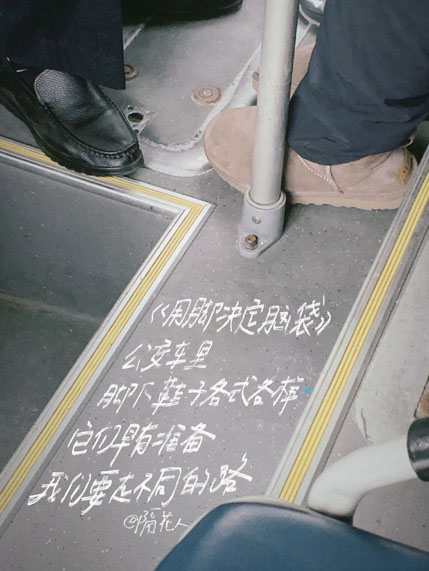 《用脚决定脑袋》
公交车里
脚下鞋子各式各样
它们早有准备
我们要走不同的路
@隔花人